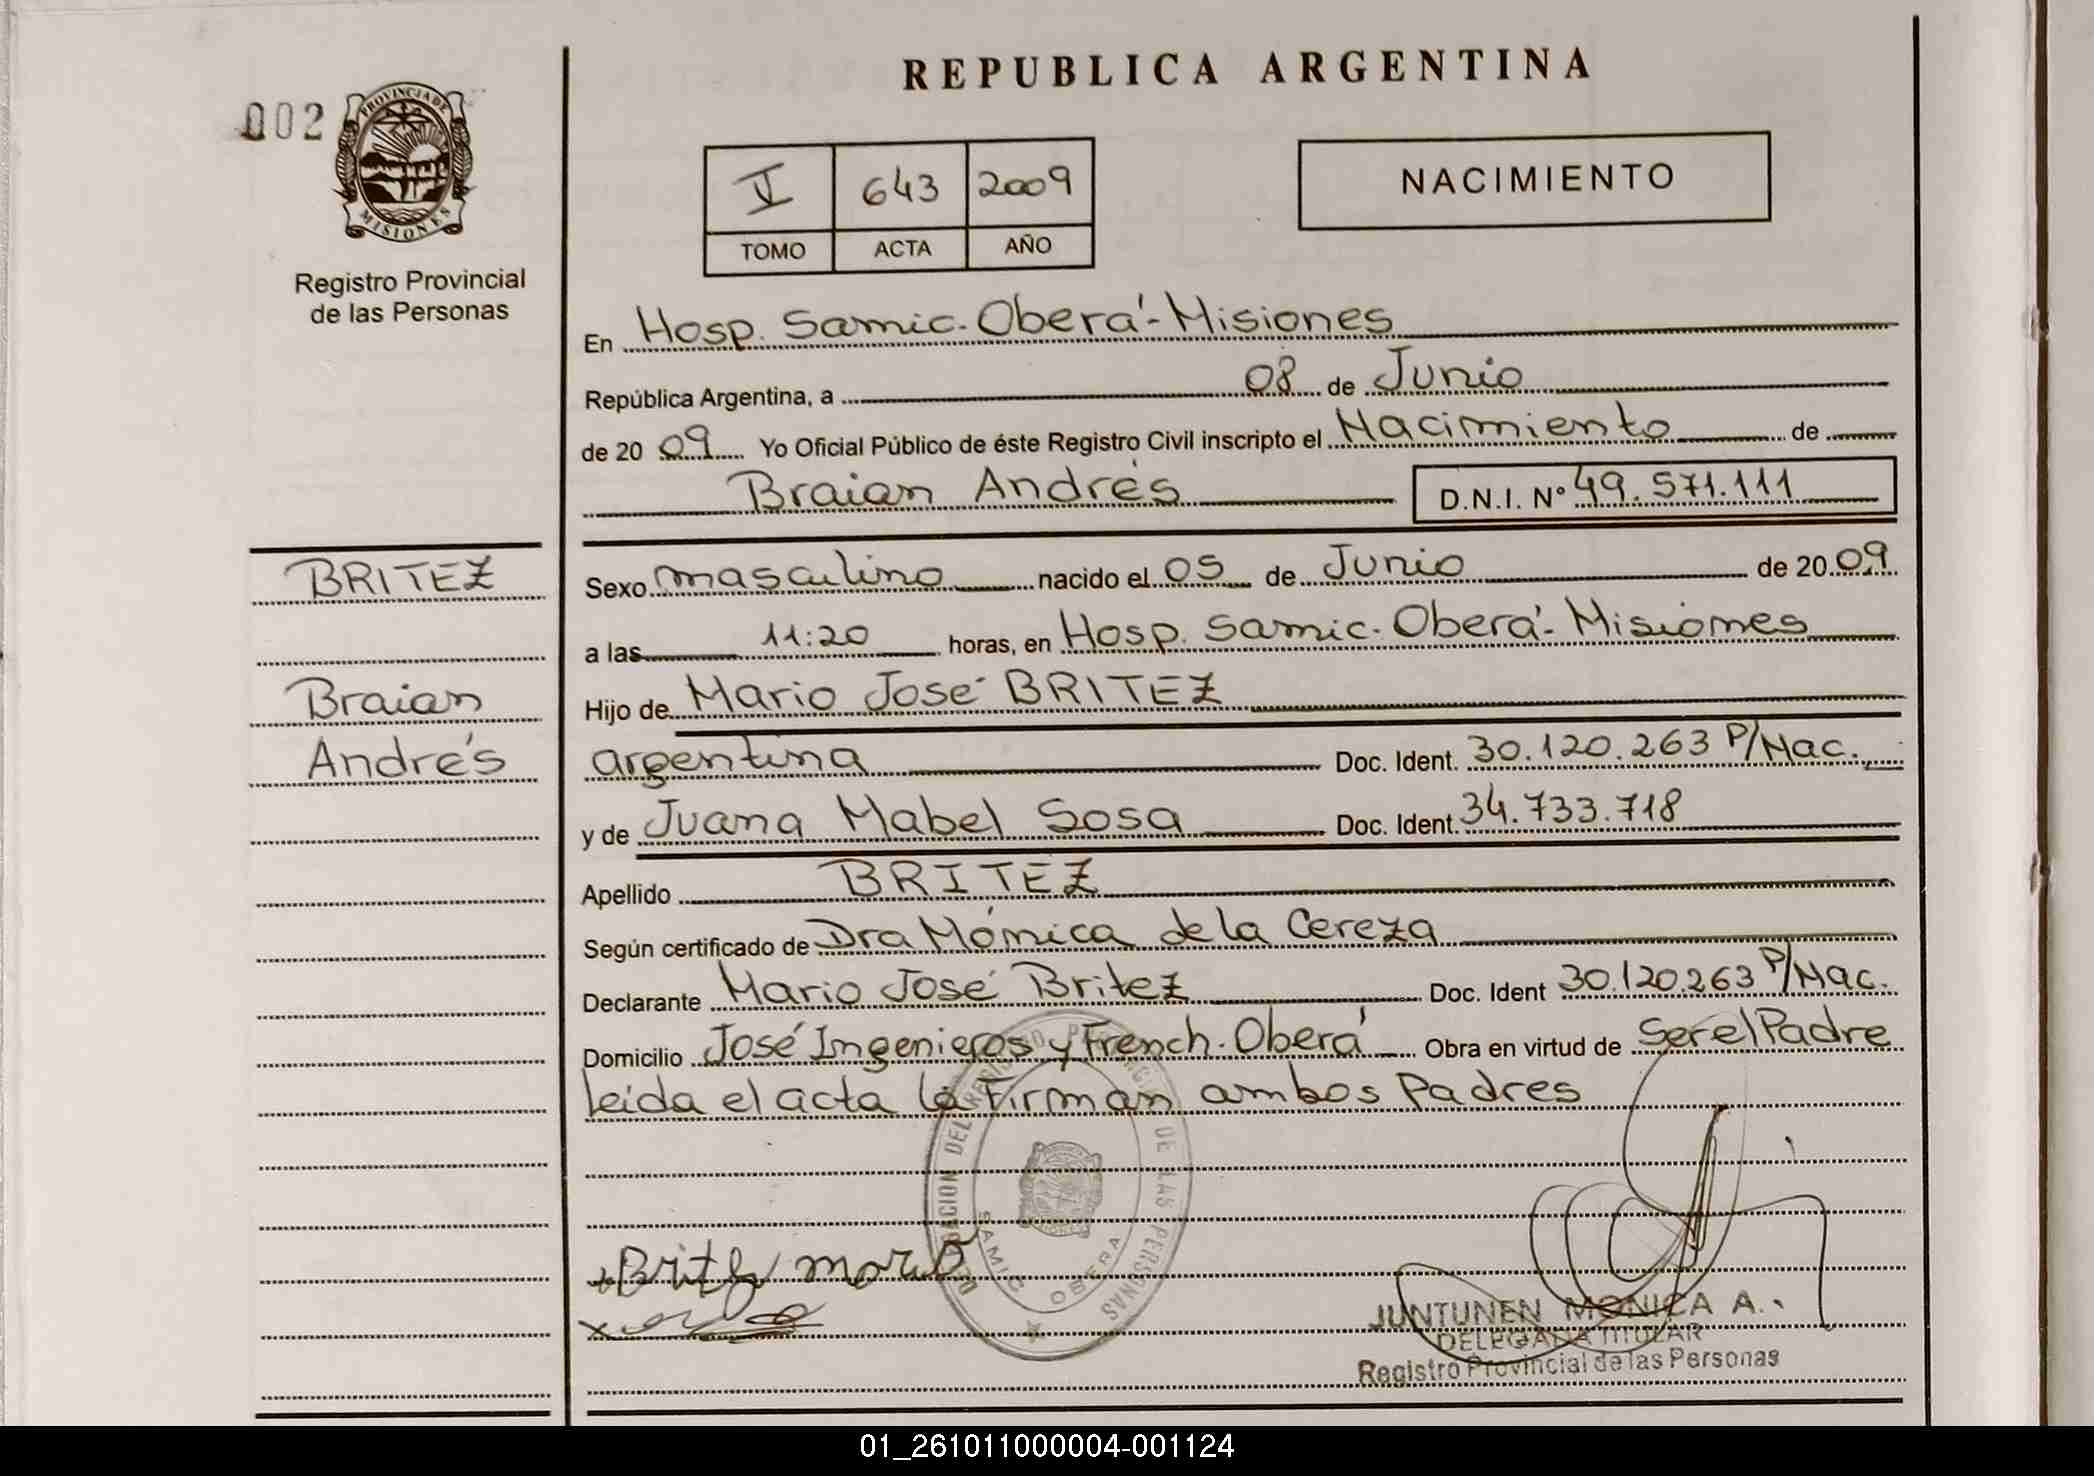 REPUBLICA ARGENTINA
002
PROVINCIA DE
MISIONES
Registro Provincial
de las Personas
I 643 2009
TOMO ACTA AÑO
NACIMIENTO
En Hosp. Samic. Oberá - Misiones
República Argentina, a 08 de Junio
de 2009 Yo Oficial Público de éste Registro Civil inscripto el Nacimiento de
Braian Andrés D.N.I. Nº 49.571.111
BRITEZ
Braian
Andrés
Sexo masculino nacido el 05 de Junio de 2009
a las 11:20 horas, en Hosp. Samic. Oberá - Misiones
Hijo de Mario José BRITEZ
argentina Doc. Ident. 30.120.263 P/Nac.
y de Juana Mabel Sosa Doc. Ident. 34.733.718
Apellido BRITEZ
Según certificado de Dra Mónica de la Cereza
Declarante Mario José Britez Doc. Ident 30.120.263 P/Nac.
Domicilio José Ingenieros y French. Oberá Obra en virtud de Ser el Padre
leída el acta la Firman ambos Padres
DEL REGISTRO PROVINCIAL DE LAS PERSONAS
SAMIC OBERA
JUNTUNEN MONICA A.
DELEGADA TITULAR
Registro Provincial de las Personas
01_261011000004-001124